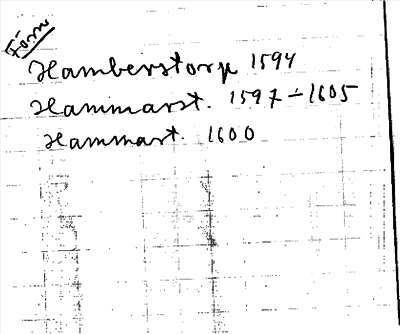 Förn
Hamberstorp 1594
Hammarst. 1597-1605
Hammart. 1600